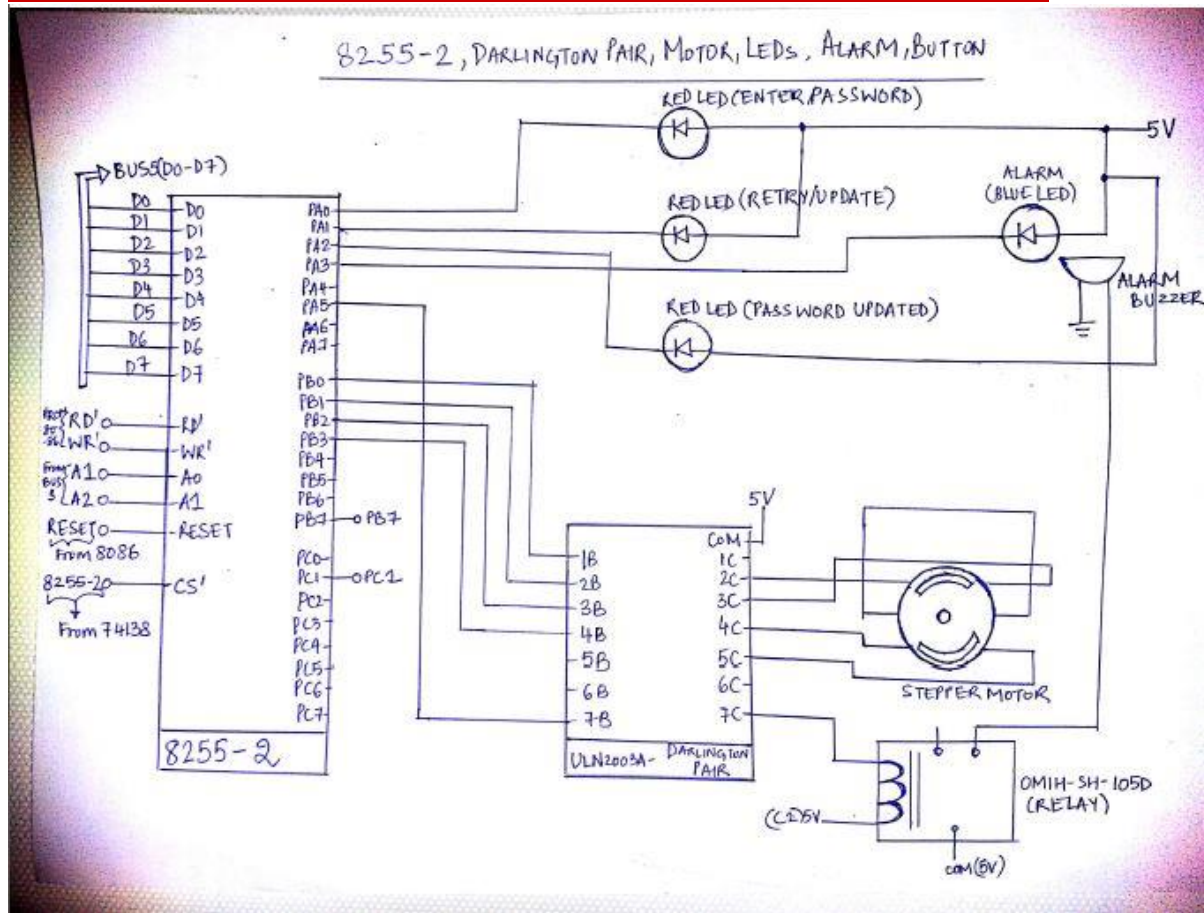 8255-2, DARLINGTON PAIR, MOTOR, LEDs, ALARM, BUTTON
RED LED (ENTER PASSWORD)
5V
BUS5(D0-D7)
ALARM
(BLUE LED)
RED LED (RETRY/UPDATE)
ALARM
BUZZER
RED LED (PASSWORD UPDATED)
D0
D1
D2
D3
D4
D5
D6
D7
D0
D1
D2
D3
D4
D5
D6
D7
RD'
WR'
From
BUS
3
A1
A2
RESET
From 8086
8255-2
From 74138
RD'
WR'
A0
A1
RESET
CS'
PA0
PA1
PA2
PA3
PA4
PA5
PA6
PA7
PB0
PB1
PB2
PB3
PB4
PB5
PB6
PB7
PB7
PC0
PC1
PC1
PC2
PC3
PC4
PC5
PC6
PC7
8255-2
5V
1B
2B
3B
4B
5B
6B
7B
COM
1C
2C
3C
4C
5C
6C
7C
ULN2003A- DARLINGTON
PAIR
STEPPER MOTOR
OMIH-SH-105D
(RELAY)
(C2)5V
COM(5V)